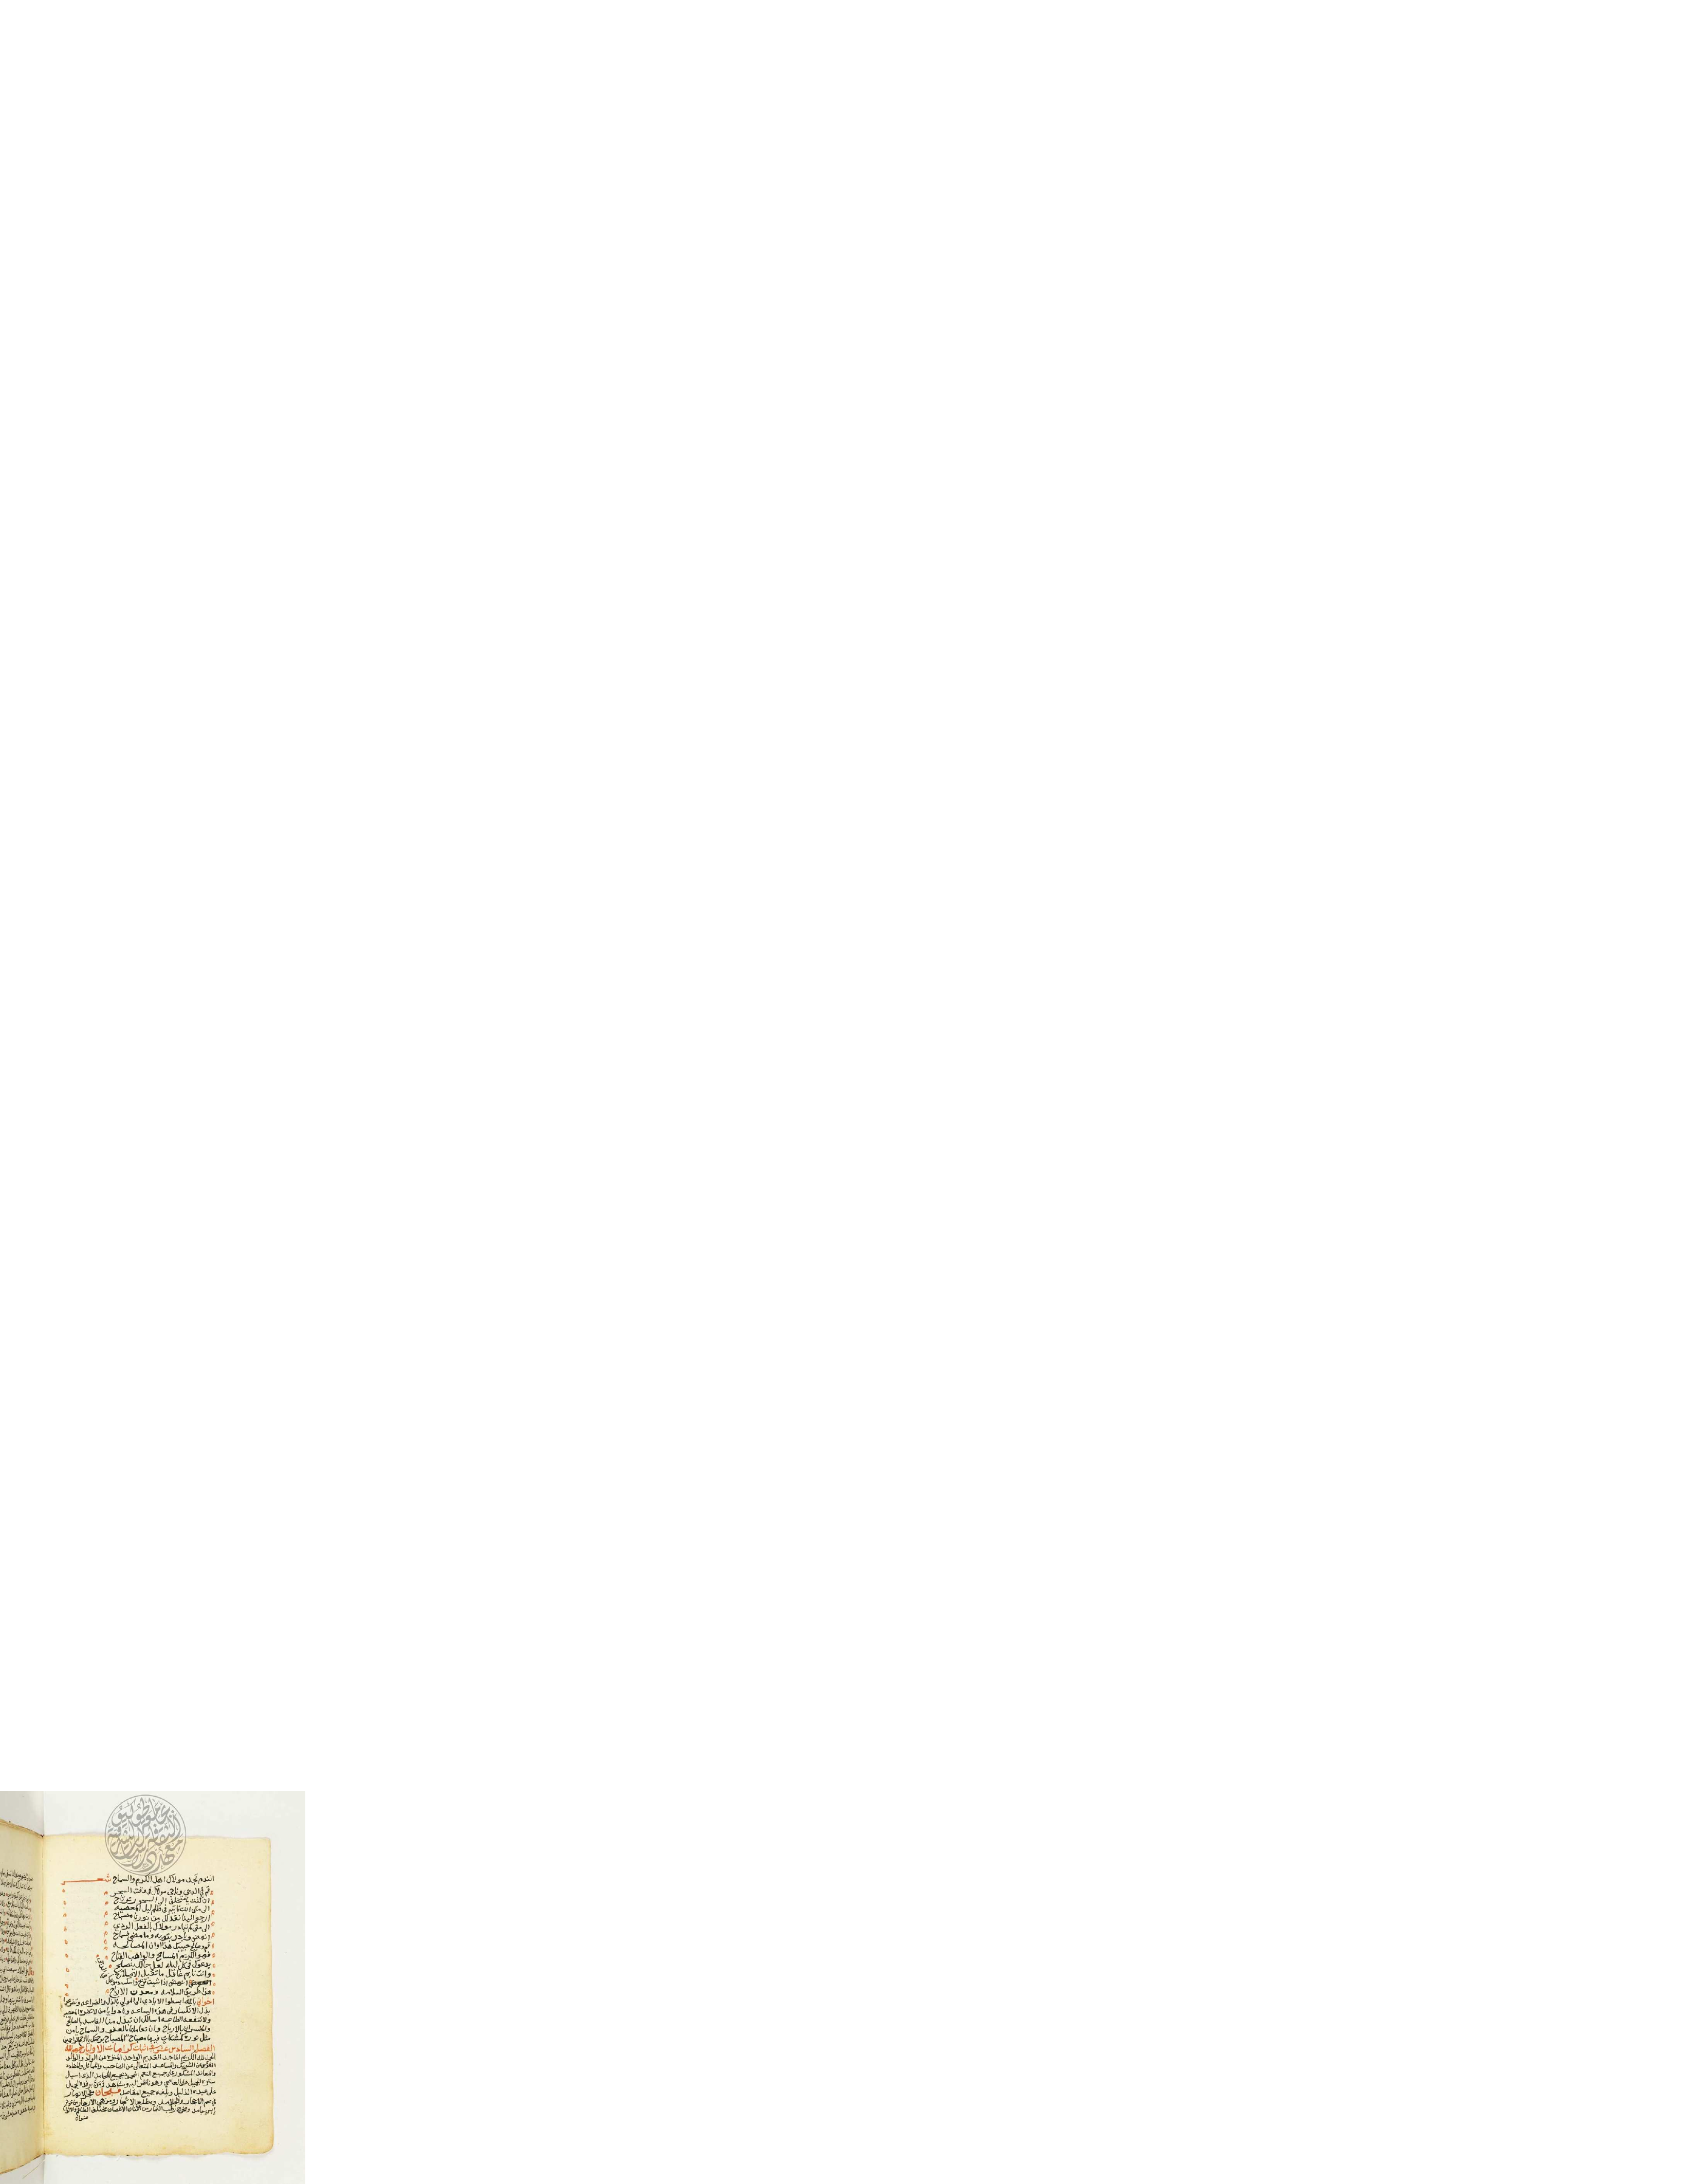 الندم تجد مولاك اهل الكرم والسماح
قم في الدجي وناجي مولاك في وقت السحر
ان كنت يا متخلف الي السحور ترتاح
الي متي انت كابر في ظلم ليل المعصيه
ارجع الينا نعد لك من نورنا مصباح
الي متي كم تبادر مولاك بالفعل الردي
انهض وبادر بتوبه وما مضي قد راح
قم وصالح حبيبك هذا اوان المصالحه
فهو الكريم المسامح والواهب الفتاح
يدعوك في كل ليله لعل حالك ينصلح
وانت نايم غافل ما تقبل الاصلاح
هذا طريق السلامه ومعدن الارباح
اخواني بالله ابسطوا الايادي الي المولي بالذل والضراعه وتضرعوا
بذل الانكسار في هذه الساعه ونادوا يا من لا تضره المعصيه
ولا تنفعه الطاعه اسالك ان تبدل منا الفاسد بالصالح
والخسران بالارباح وان تعاملنا بالعفو والسماح يا من
مثل نوره كمشكاة فيها مصباح المصباح برحمتك يا ارحم الراحمين
الفصل السادس عشر في اثبات كرامات الاولياء رضي الله
الحمد لله الكريم الماجد القديم الواحد المنزه عن الولد والوالد
المقدس عن الشريك والمساعد المتعالي عن الصاحب والمماثل والمضادد
والمعاند المشكور علي جميع النعم المحمود بجميع المحامد الذي اسبل
ستره الجميل علي العاصي وهو ناظر اليه ومشاهد
علي عبده الذليل وبلغه جميع المقاصد فسبحان مجري الانهار
في صم الاحجار والجلامد ومطلع الاثمار ومزهي الازهار من عود